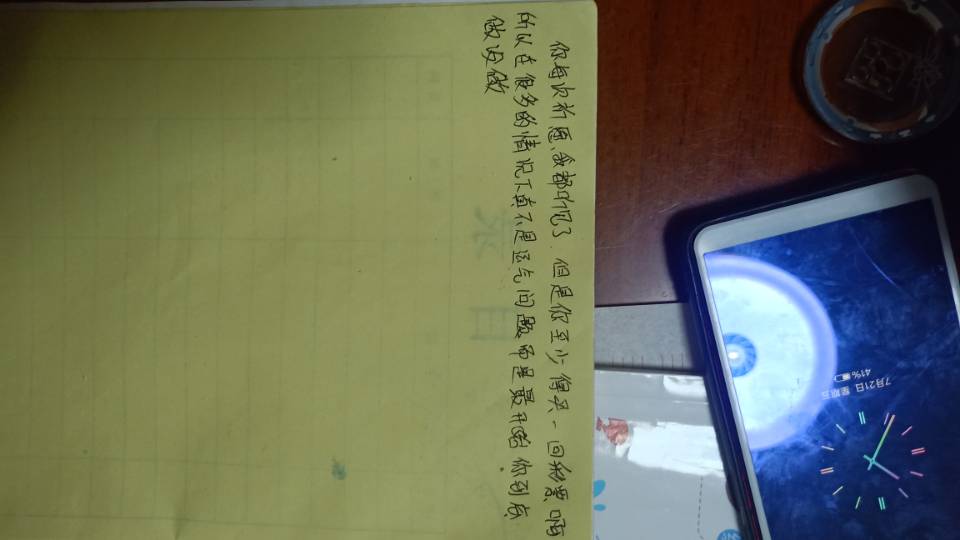 你每次祈愿,我都听见了.但是你至少得买一回彩票啊
所以在很多的情况下真不是运气问题而是最开始你到底
做没做
7月21日 星期五
41%